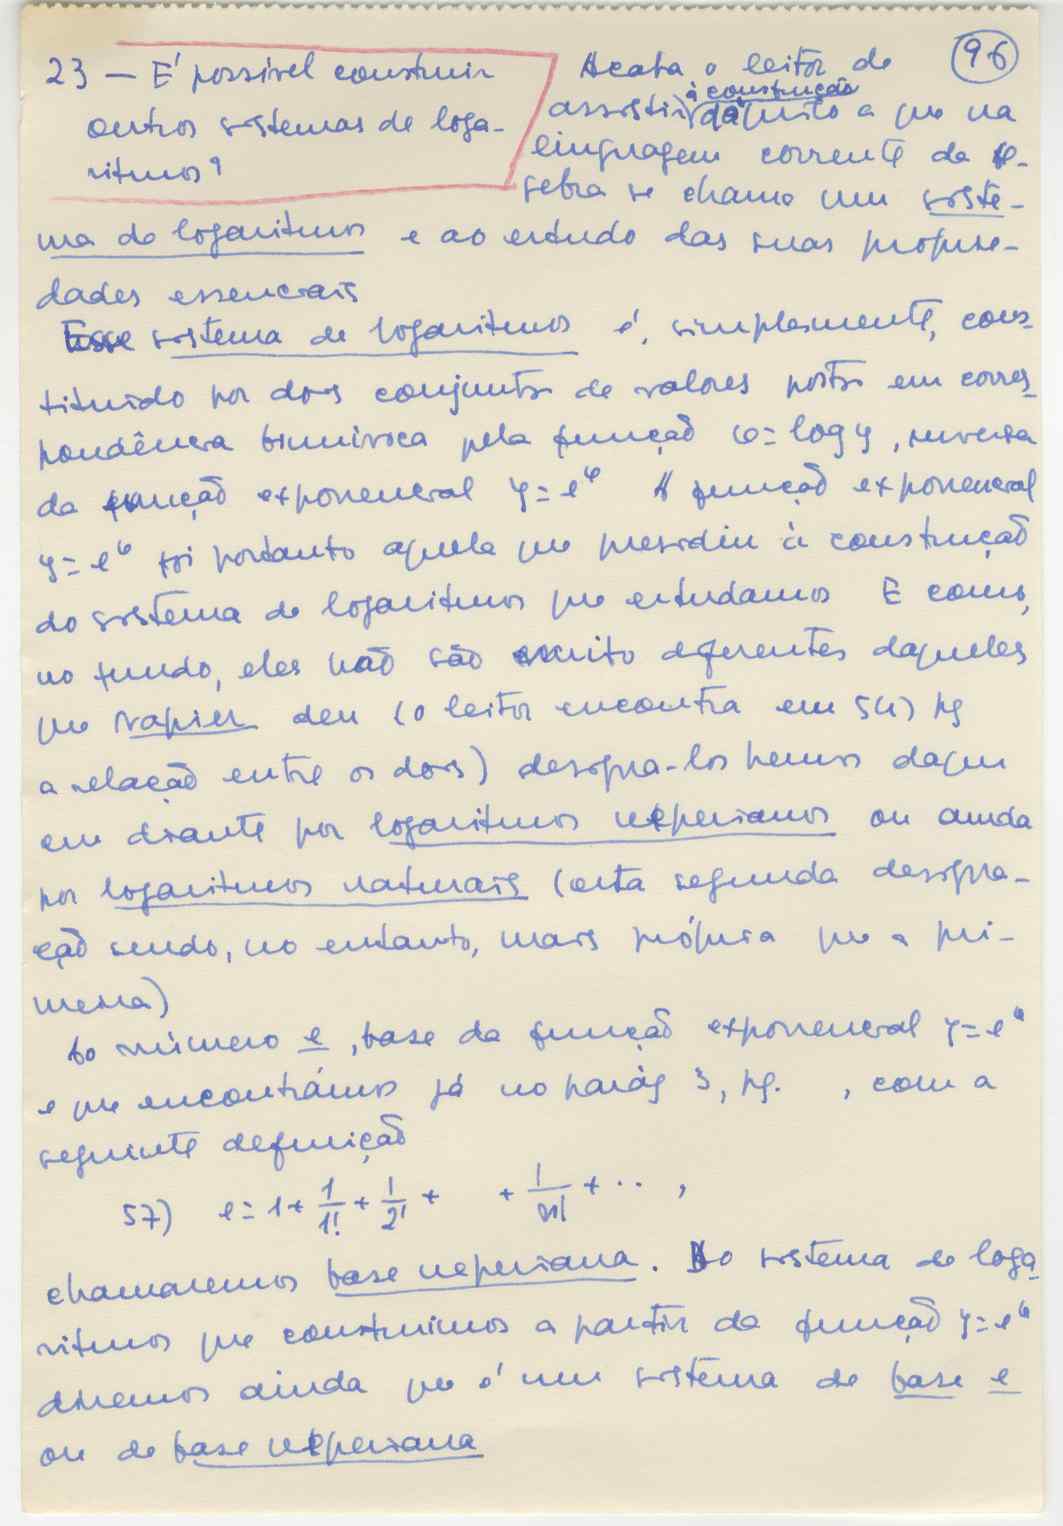 96
23 — É possivel construir
outros sistemas de loga-
ritmos?
Acaba o leitor de
assistir à construção daquilo a que na
linguagem corrente da Al-
gebra se chama um siste-
ma de logaritmos e ao estudo das suas proprie-
dades essenciais
Esse sistema de logaritmos é, simplesmente, cons-
tituido por dois conjuntos de valores postos em corres-
pondência biunivoca pela função φ = log y, inversa
da função exponencial y = e^φ A função exponencial
y = e^φ foi portanto aquela que presidiu à construção
do sistema de logaritmos que estudamos E como,
no fundo, eles não são muito diferentes daqueles
que Napier deu (o leitor encontra em 54) pg
a relação entre os dois) designa-los hemos daqui
em diante por logaritmos neperianos ou ainda
por logaritmos naturais (esta segunda designa-
ção sendo, no entanto, mais própria que a pri-
meira)
Ao número e, base da função exponencial y = e^φ
e que encontrámos já no parág 3, pg. , com a
seguinte definição
57) e = 1 + 1/1! + 1/2! + + 1/n! + ·· ,
chamaremos base neperiana. Do sistema de loga-
ritmos que construimos a partir da função y = e^φ
diremos ainda que é um sistema de base e
ou de base neperiana